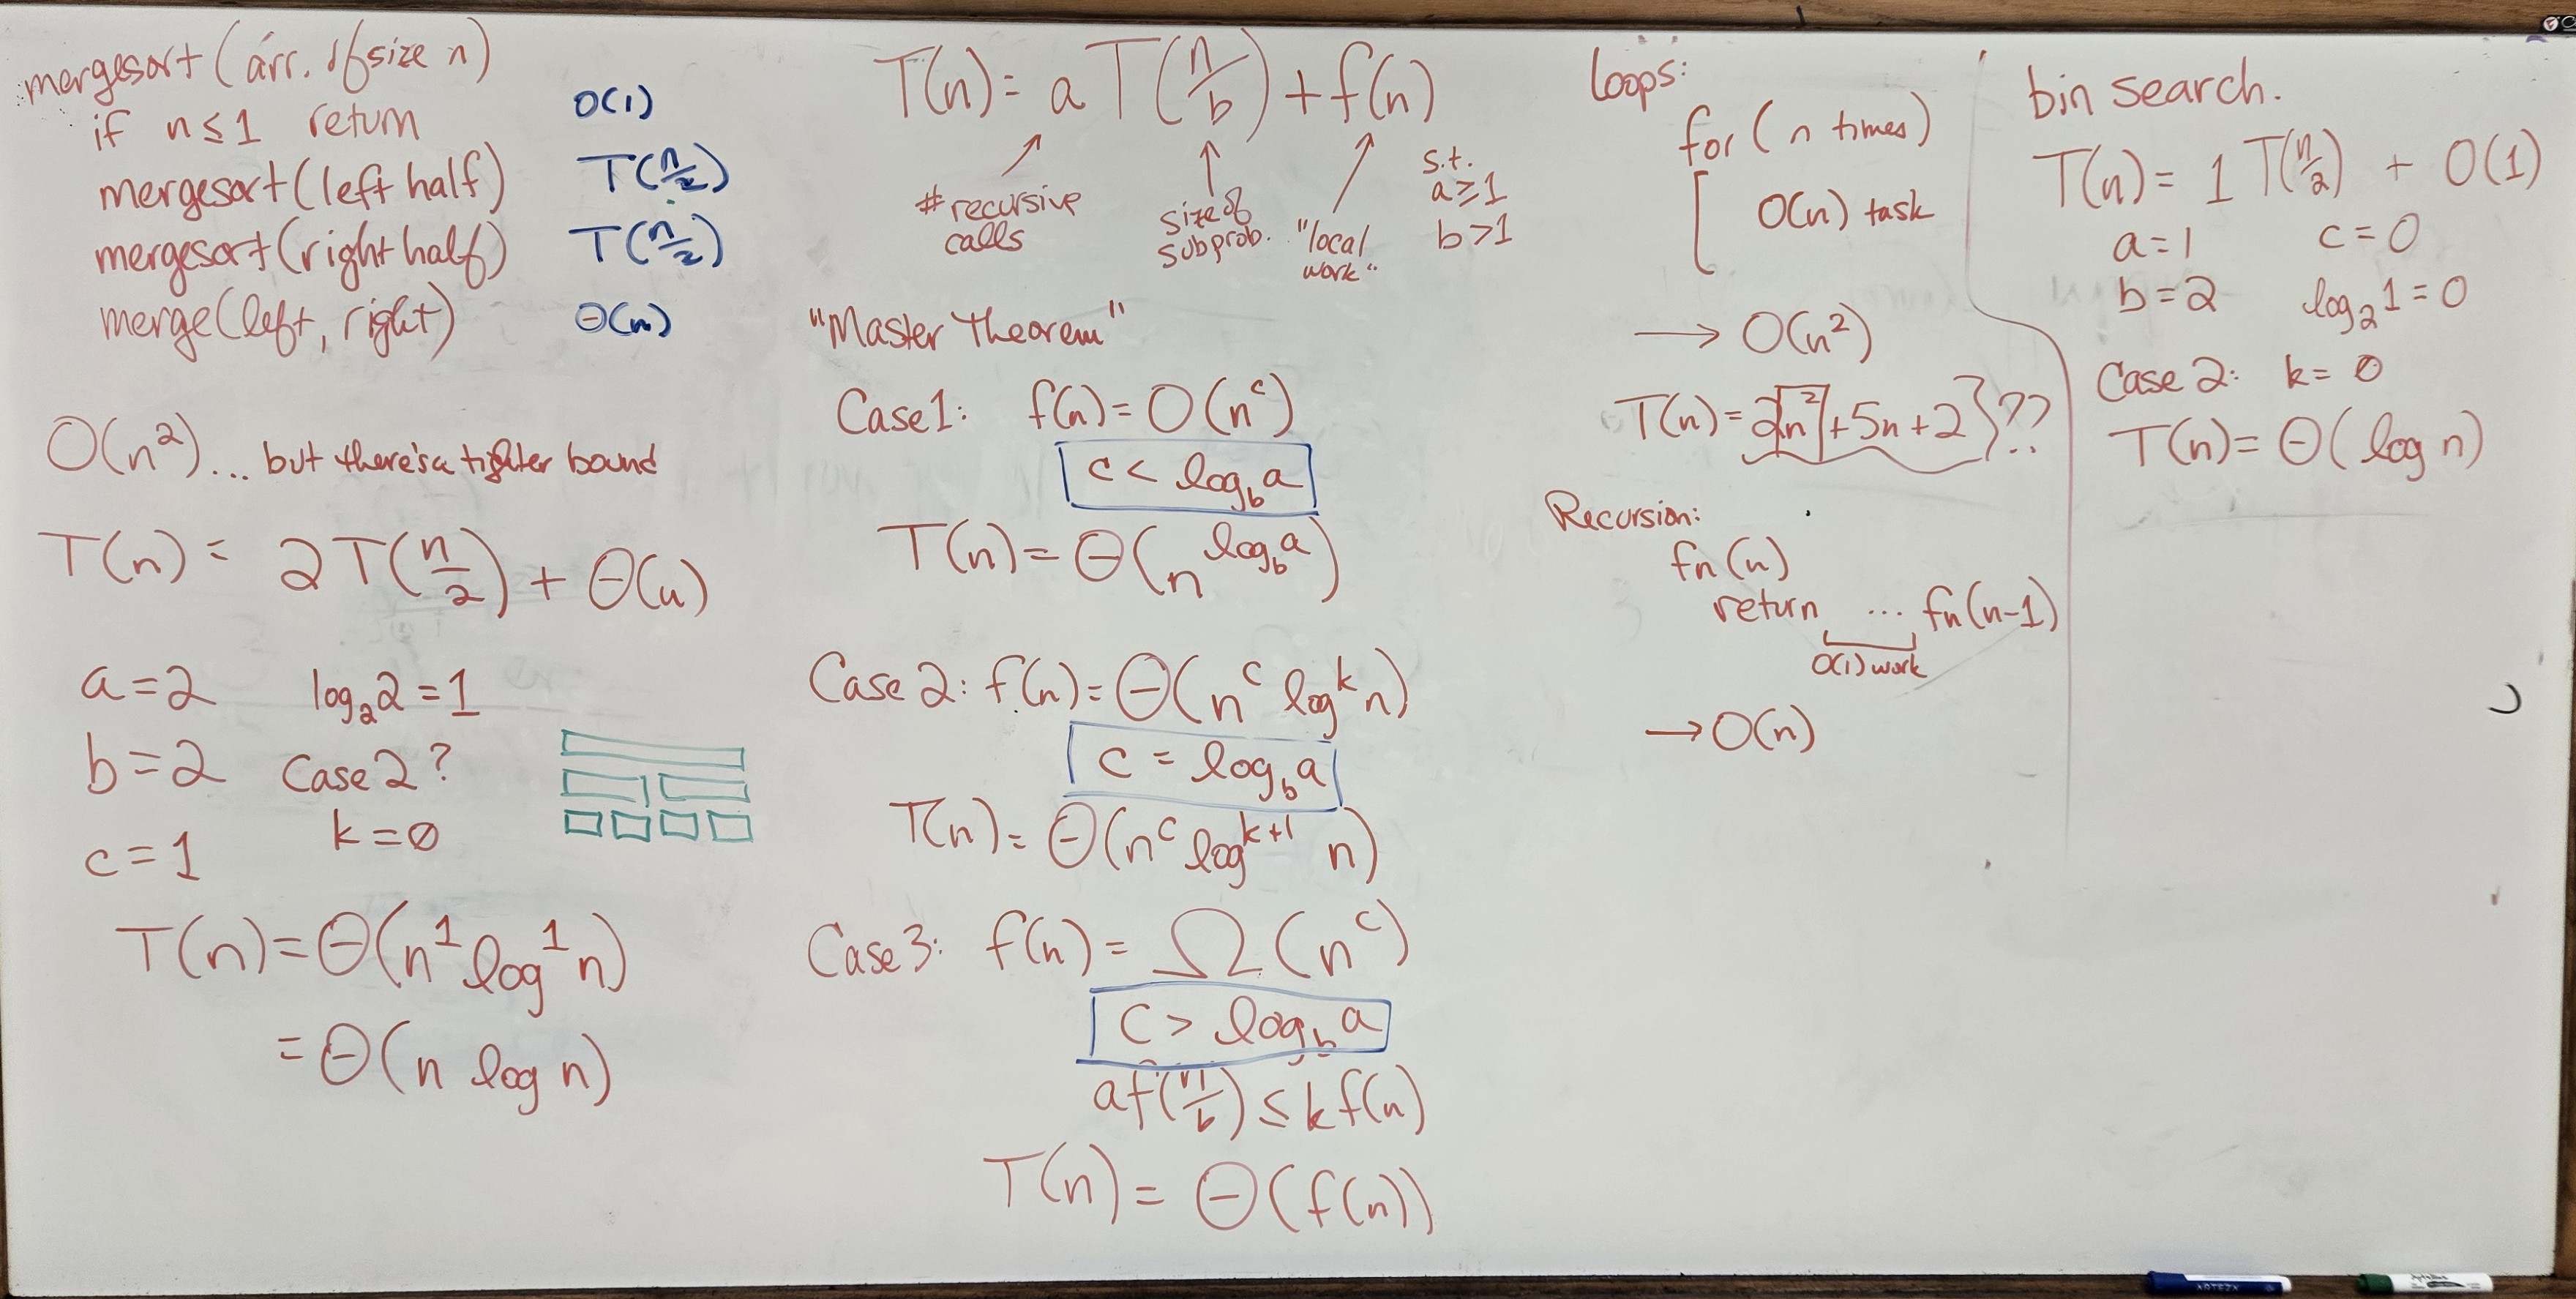 mergesort (arr. of size n)
if n ≤ 1 return O(1)
mergesort (left half) T(n/2)
mergesort (right half) T(n/2)
merge (left, right) Θ(n)
O(n²)... but there's a tighter bound
T(n) = 2T(n/2) + Θ(n)
a = 2 log₂2 = 1
b = 2 Case 2?
c = 1 k = 0
T(n) = Θ(n¹ log¹ n)
= Θ(n log n)
T(n) = a T(n/b) + f(n)
# recursive calls
size of subprob.
"local work"
s.t.
a ≥ 1
b > 1
"Master Theorem"
Case 1: f(n) = O(n^c)
c < log_b a
T(n) = Θ(n^(log_b a))
Case 2: f(n) = Θ(n^c log^k n)
c = log_b a
T(n) = Θ(n^c log^(k+1) n)
Case 3: f(n) = Ω(n^c)
c > log_b a
a f(n/b) ≤ k f(n)
T(n) = Θ(f(n))
loops:
for (n times)
O(n) task
→ O(n²)
T(n) = 2n² + 5n + 2 } ??
Recursion:
fn(n)
return ... fn(n-1)
O(1) work
→ O(n)
bin search.
T(n) = 1 T(n/2) + O(1)
a = 1 c = 0
b = 2 log₂1 = 0
Case 2: k = 0
T(n) = Θ(log n)
ARTEZA